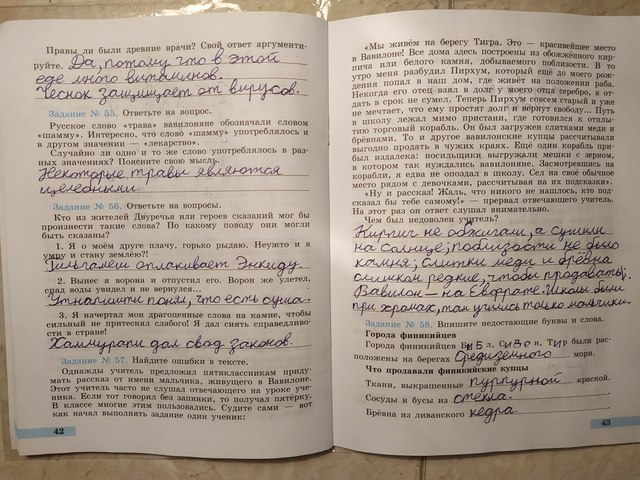 Правы ли были древние врачи? Свой ответ аргументи-
руйте. Да, потому что в этой
еде много витаминов.
Чеснок защищает от вирусов.
Задание № 55. Ответьте на вопрос.
Русское слово «трава» вавилоняне обозначали словом
«шамму». Интересно, что слово «шамму» употреблялось и
в другом значении — «лекарство».
Случайно ли одно и то же слово употреблялось в раз-
ных значениях? Поясните свою мысль.
Некоторые травы являются
целебными.
Задание № 56. Ответьте на вопросы.
Кто из жителей Двуречья или героев сказаний мог бы
произнести такие слова? По какому поводу они могли
быть сказаны?
1. Я о моём друге плачу, горько рыдаю. Неужто и я
умру и стану землёю?!
Гильгамеш оплакивает Энкиду.
2. Вынес я ворона и отпустил его. Ворон же улетел,
спад воды увидел и не вернулся...
Утнапишти понял, что есть суша.
3. Я начертал мои драгоценные слова на камне, чтобы
сильный не притеснял слабого! Я дал сиять справедливо-
сти в стране!
Хаммурапи дал свод законов.
Задание № 57. Найдите ошибки в тексте.
Однажды учитель предложил пятиклассникам приду-
мать рассказ от имени мальчика, живущего в Вавилоне.
Этот учитель часто не слушал отвечающего на уроке уче-
ника. Если тот говорил без запинки, то получал пятёрку.
В классе многие этим пользовались. Судите сами — вот
как начал выполнять задание один ученик:
42
«Мы живём на берегу Тигра. Это — красивейшее место
в Вавилоне! Все дома здесь построены из обожжённого кир-
пича или белого камня, добываемого поблизости. В то
утро меня разбудил Пирхум, который ещё до моего рож-
дения попал в наш дом, где живёт на положении раба.
Некогда его отец взял в долг у моего отца серебро, а от-
дать в срок не сумел. Теперь Пирхум совсем старый и уже
не мечтает, что ему простят долг и вернут свободу... Путь
в школу лежал мимо пристани, где готовился к отплы-
тию торговый корабль. Он был загружен слитками меди и
брёвнами. То и другое вавилонские купцы рассчитывали
выгодно продать в чужих краях. Ещё один корабль при-
был издалека: носильщики выгружали мешки с зерном,
в котором так нуждались вавилоняне. Засмотревшись на
корабли, я едва не опоздал в школу. Сел на своё обычное
место рядом с девочками, рассчитывая на их подсказки».
«Ну и рассказ! Жаль, что никого не нашлось, кто под-
сказал бы тебе самому!» — прервал отвечающего учитель.
На этот раз он ответ слушал внимательно.
Чем был недоволен учитель?
Кирпич не обжигали, а сушили
на солнце; поблизости не было
камня; слитки меди и брёвна
слишком редкие, чтобы продавать;
Вавилон — на Евфрате. Школы были
при храмах, там учились только мальчики.
Задание № 58. Впишите недостающие буквы и слова.
Города финикийцев
Города финикийцев Библ, Сидон, Тир были рас-
положены на берегах Средиземного моря.
Что продавали финикийские купцы
Ткани, выкрашенные пурпурной краской.
Сосуды и бусы из стекла.
Брёвна из ливанского кедра.
43